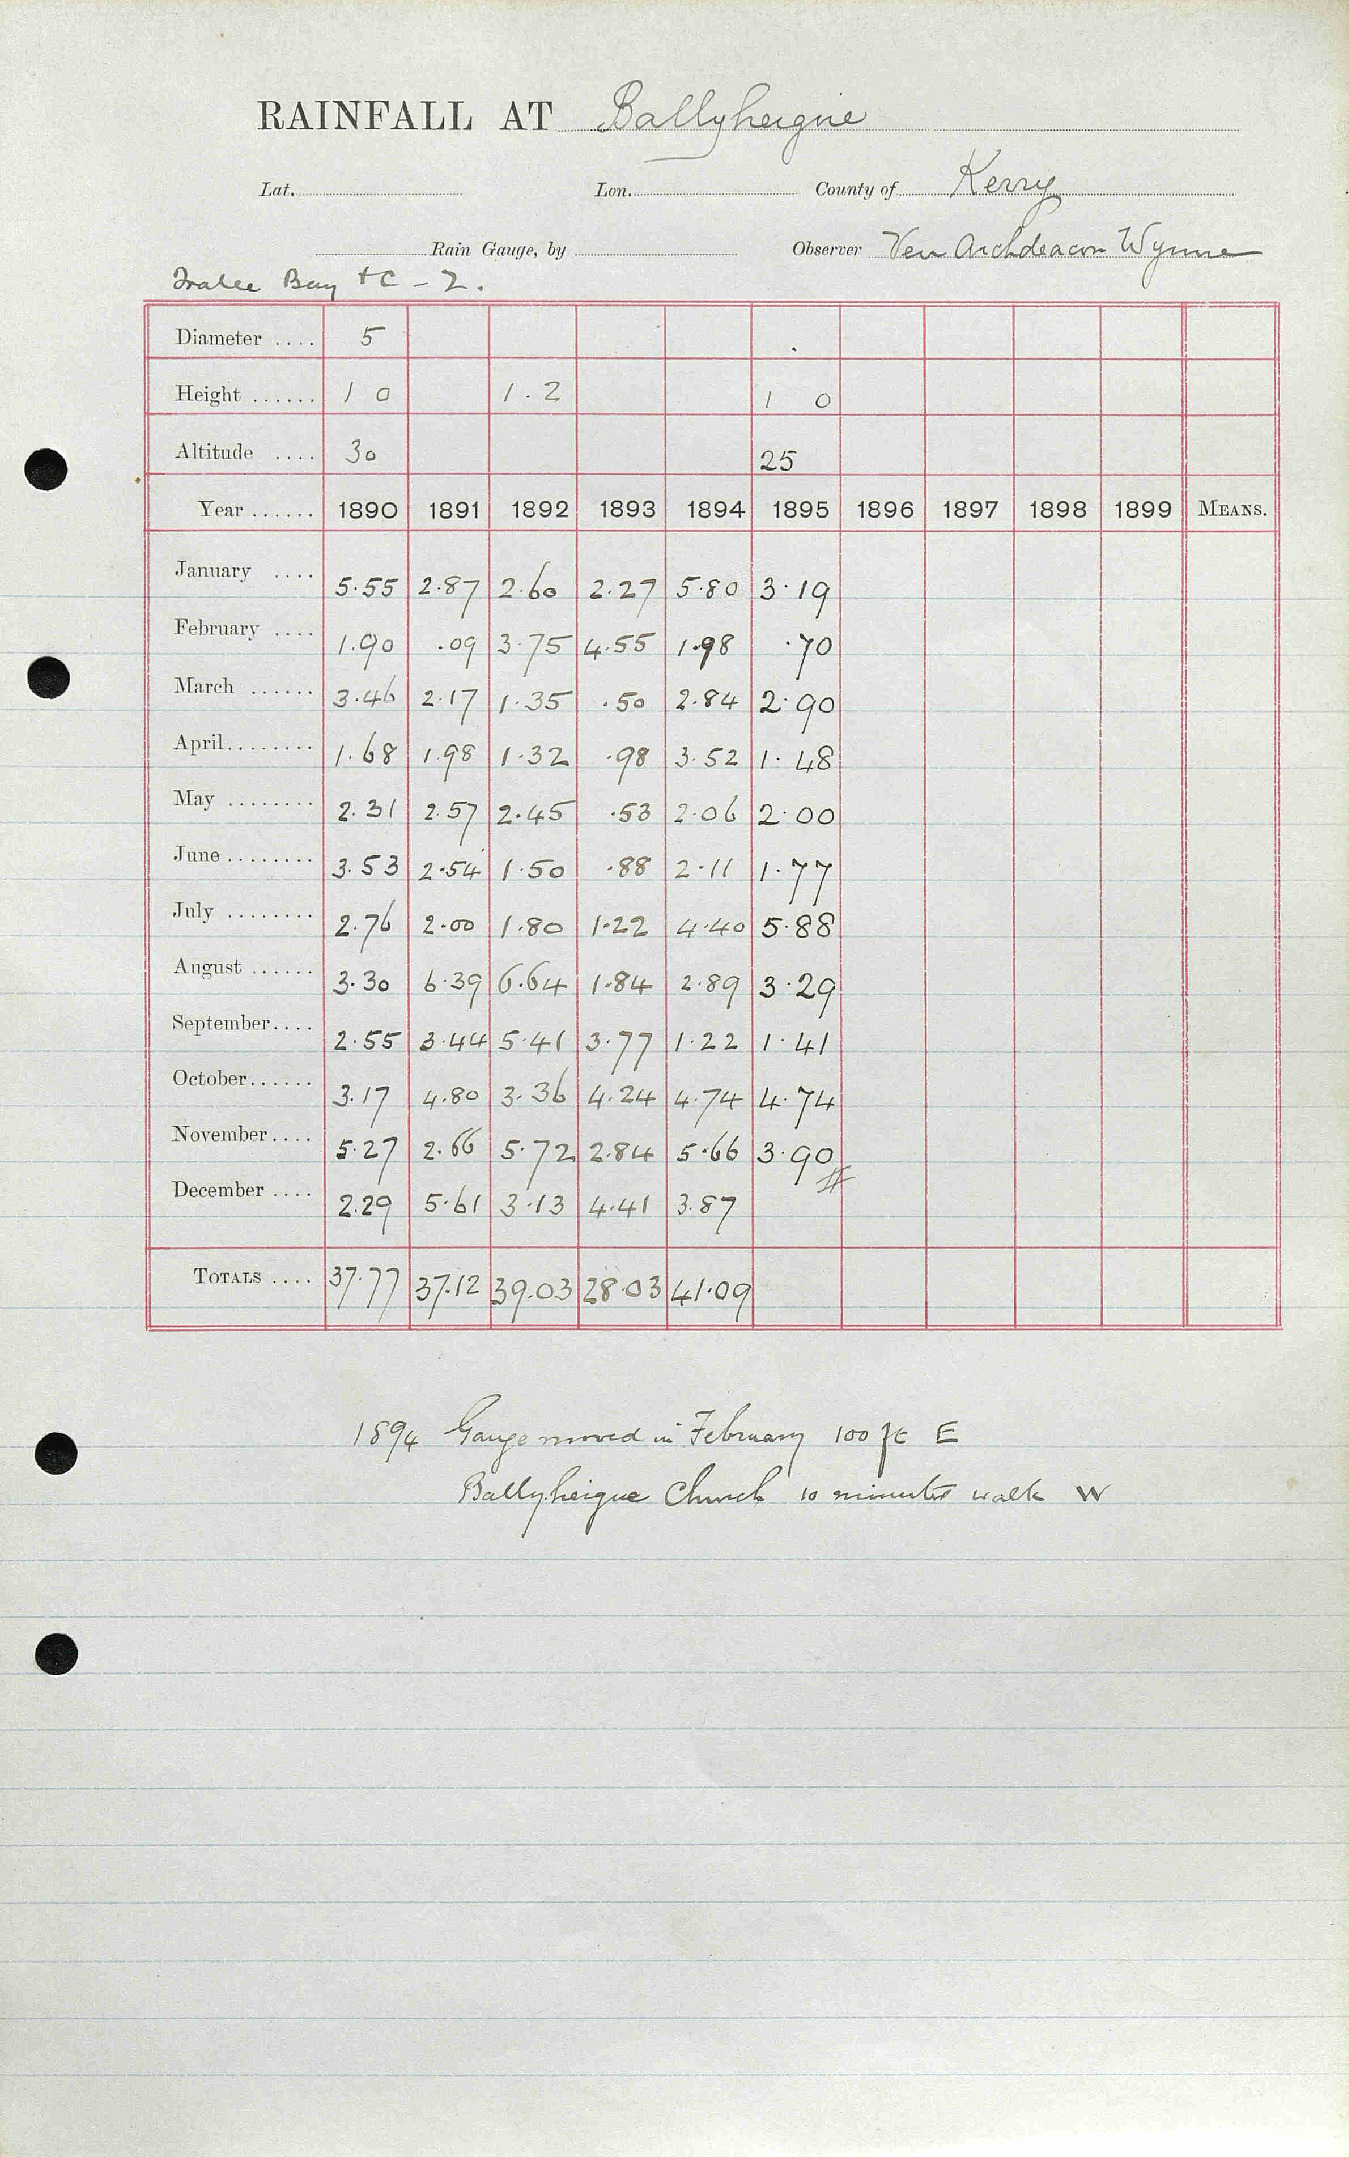 RAINFALL AT Ballyheigue
Lat. Lon. County of Kerry
Rain Gauge, by Observer Ven Archdeacon Wynne
Tralee Bay + C - 2.
Diameter .... 5
Height ...... 1 0 1.2 1 0
Altitude .... 30 25
Year ...... 1890 1891 1892 1893 1894 1895 1896 1897 1898 1899 MEANS.
January .... 5.55 2.87 2.60 2.27 5.80 3.19
February .... 1.90 .09 3.75 4.55 1.98 .70
March ...... 3.46 2.17 1.35 .50 2.84 2.90
April........ 1.68 1.98 1.32 .98 3.52 1.48
May ........ 2.31 2.57 2.45 .53 2.06 2.00
June ........ 3.53 2.54 1.50 .88 2.11 1.77
July ........ 2.76 2.00 1.80 1.22 4.40 5.88
August ...... 3.30 6.39 6.64 1.84 2.89 3.29
September.... 2.55 3.44 5.41 3.77 1.22 1.41
October...... 3.17 4.80 3.36 4.24 4.74 4.74
November.... 5.27 2.66 5.72 2.84 5.66 3.90
December .... 2.29 5.61 3.13 4.41 3.87 #
TOTALS .... 37.77 37.12 39.03 28.03 41.09
1894 Gauge moved in February 100 ft E
Ballyheigue Church 10 minutes walk W